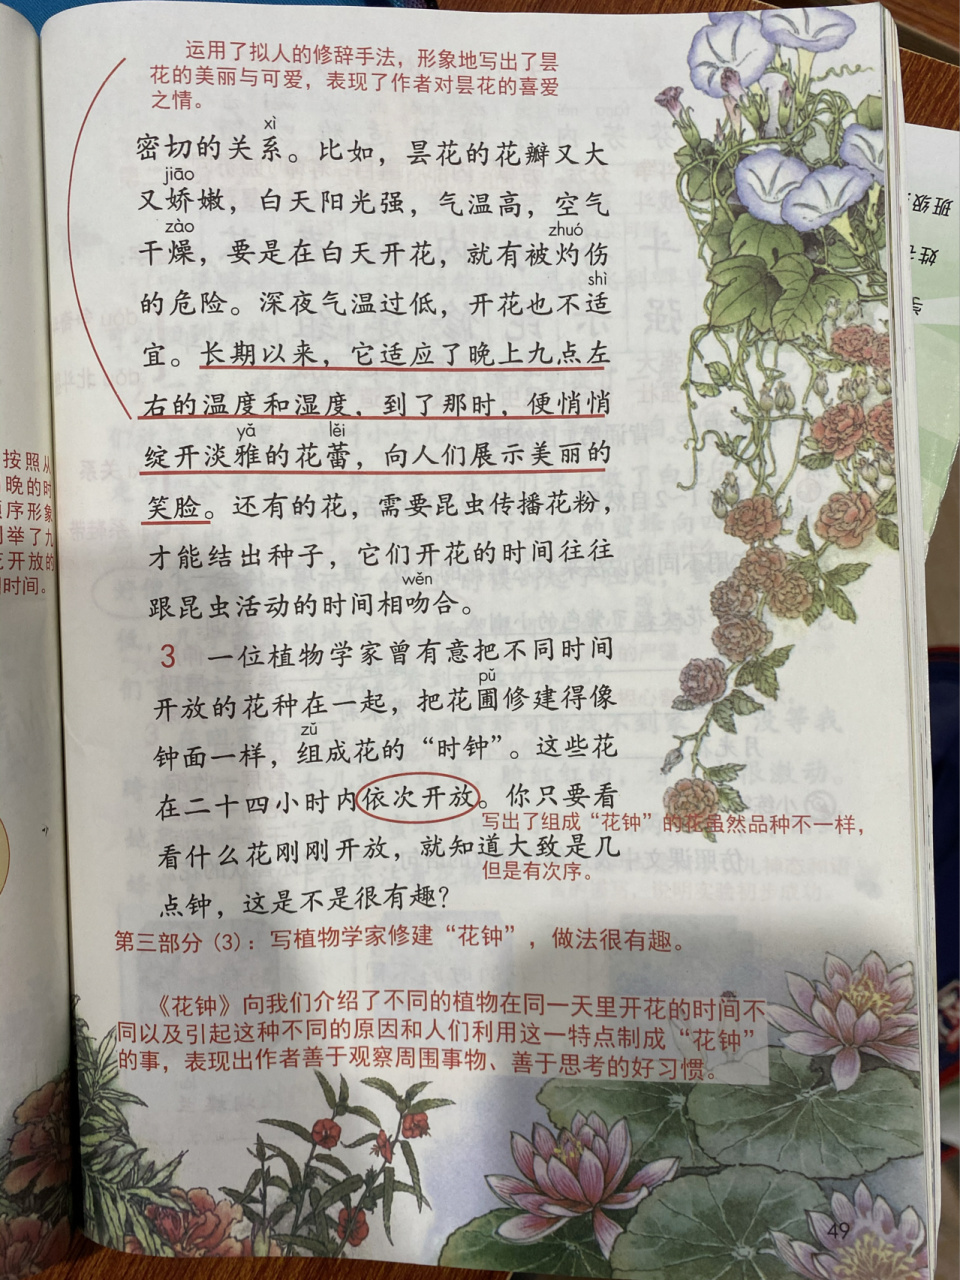 运用了拟人的修辞手法，形象地写出了昙
花的美丽与可爱，表现了作者对昙花的喜爱
之情。
xì
密切的关系。比如，昙花的花瓣又大
jiāo
又娇嫩，白天阳光强，气温高，空气
zào zhuó
干燥，要是在白天开花，就有被灼伤
shì
的危险。深夜气温过低，开花也不适
宜。长期以来，它适应了晚上九点左
右的温度和湿度，到了那时，便悄悄
yǎ lěi
绽开淡雅的花蕾，向人们展示美丽的
笑脸。还有的花，需要昆虫传播花粉，
才能结出种子，它们开花的时间往往
wěn
跟昆虫活动的时间相吻合。
3 一位植物学家曾有意把不同时间
pǔ
开放的花种在一起，把花圃修建得像
zǔ
钟面一样，组成花的“时钟”。这些花
在二十四小时内依次开放。你只要看
写出了组成“花钟”的花虽然品种不一样，
看什么花刚刚开放，就知道大致是几
但是有次序。
点钟，这是不是很有趣？
第三部分（3）：写植物学家修建“花钟”，做法很有趣。
《花钟》向我们介绍了不同的植物在同一天里开花的时间不
同以及引起这种不同的原因和人们利用这一特点制成“花钟”
的事，表现出作者善于观察周围事物、善于思考的好习惯。
49
按照从
晚的时
序形象
举了九
开放的
时间。
班级
姓